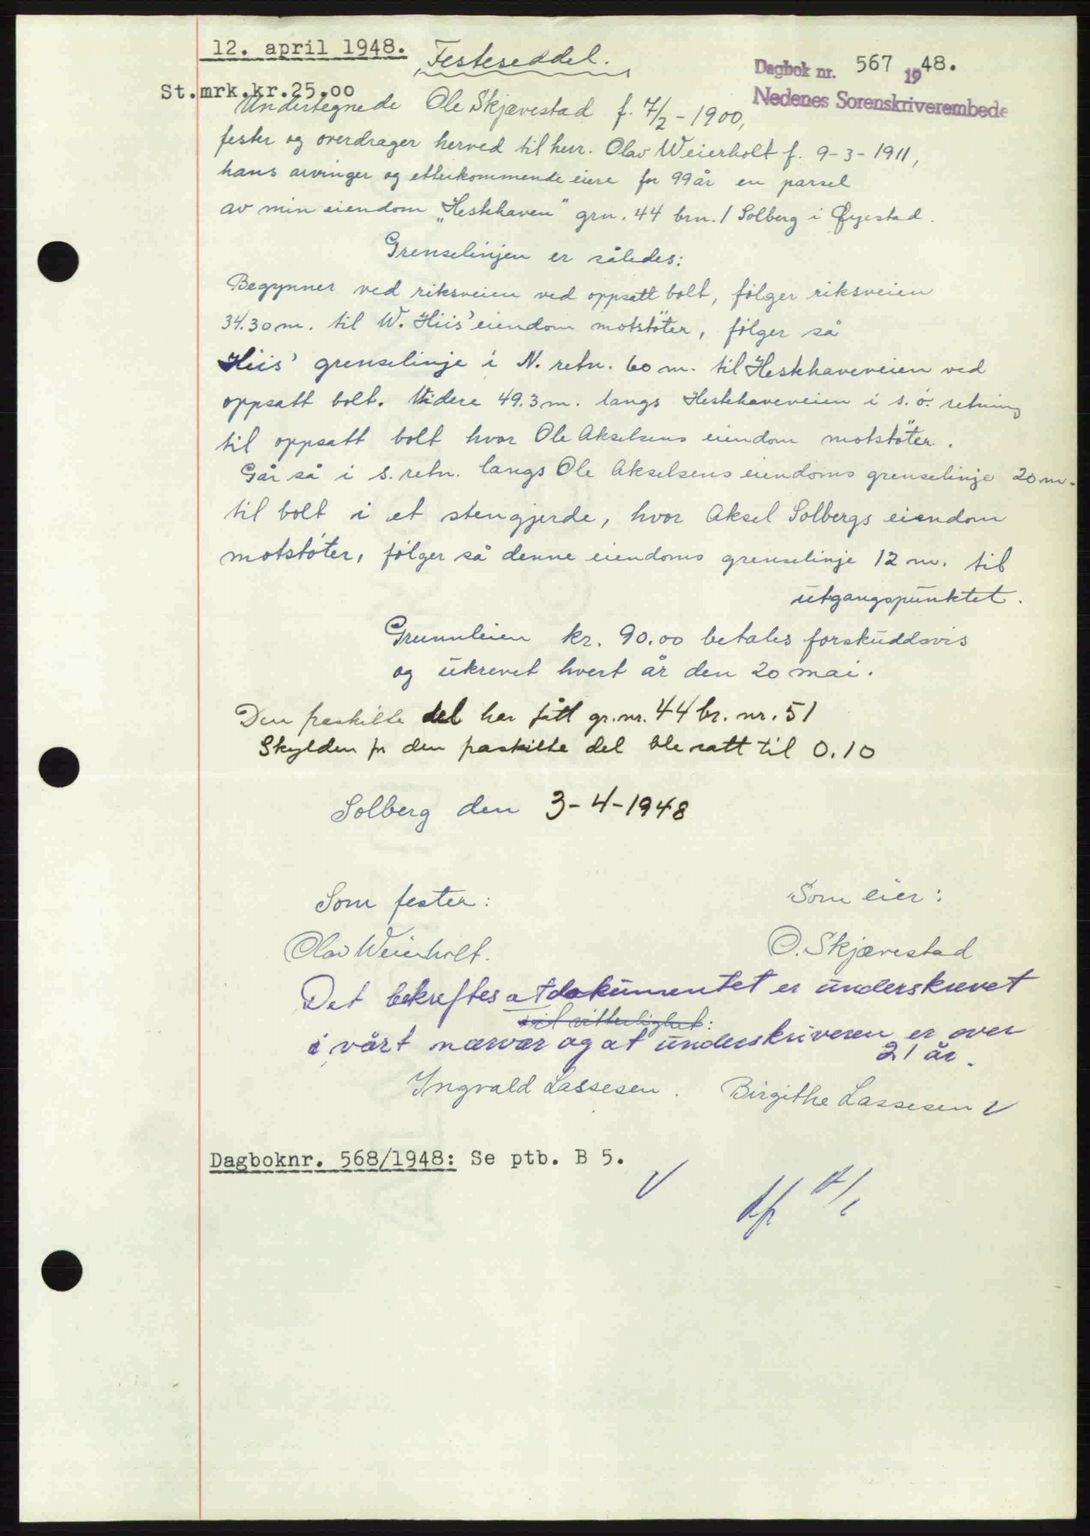 12. april 1948.
Festeseddel.
Dagbok nr. 567 1948.
Nedenes Sorenskriverembede
St.mrk.kr.25.00
Undertegnede Ole Skjævestad f. 7/2 - 1900,
fester og overdrager herved til herr. Olav Weierholt f. 9-3-1911,
hans arvinger og etterkommende eiere for 99 år en parsel
av min eiendom "Hestehaven" grn. 44 brn. 1 Solberg i Øyestad.
Grenselinjen er således:
Begynner ved riksveien ved oppsatt bolt, følger riksveien
34.30 m. til W. Hiis' eiendom motstöter, følger så
Hiis' grenselinje i N. retn. 60 m. til Hestehaveveien ved
oppsatt bolt. Videre 49.3 m. langs Hestehaveveien i s.ö. retning
til oppsatt bolt hvor Ole Akselsens eiendom motstöter.
Går så i s. retn. langs Ole Akselsens eiendoms grenselinje 20 m.
til bolt i et stengjerde, hvor Aksel Solbergs eiendom
motstöter, følger så denne eiendoms grenselinje 12 m. til
utgangspunktet.
Grunnleien kr. 90.00 betales forskuddsvis
og ukrevet hvert år den 20 mai.
Den fraskilte del har fått gr. nr. 44 br. nr. 51
Skylden for den fraskilte del ble satt til 0.10
Solberg den 3-4-1948
Som fester: Som eier:
Olav Weierholt. O. Skjævestad
Det bekreftes at dokumentet er underskrevet
til vitterlighet:
i vårt nærvær og at underskriveren er over
21 år.
Ingvald Lassesen. Birgithe Lassesen
Dagboknr. 568/1948: Se ptb. B 5.